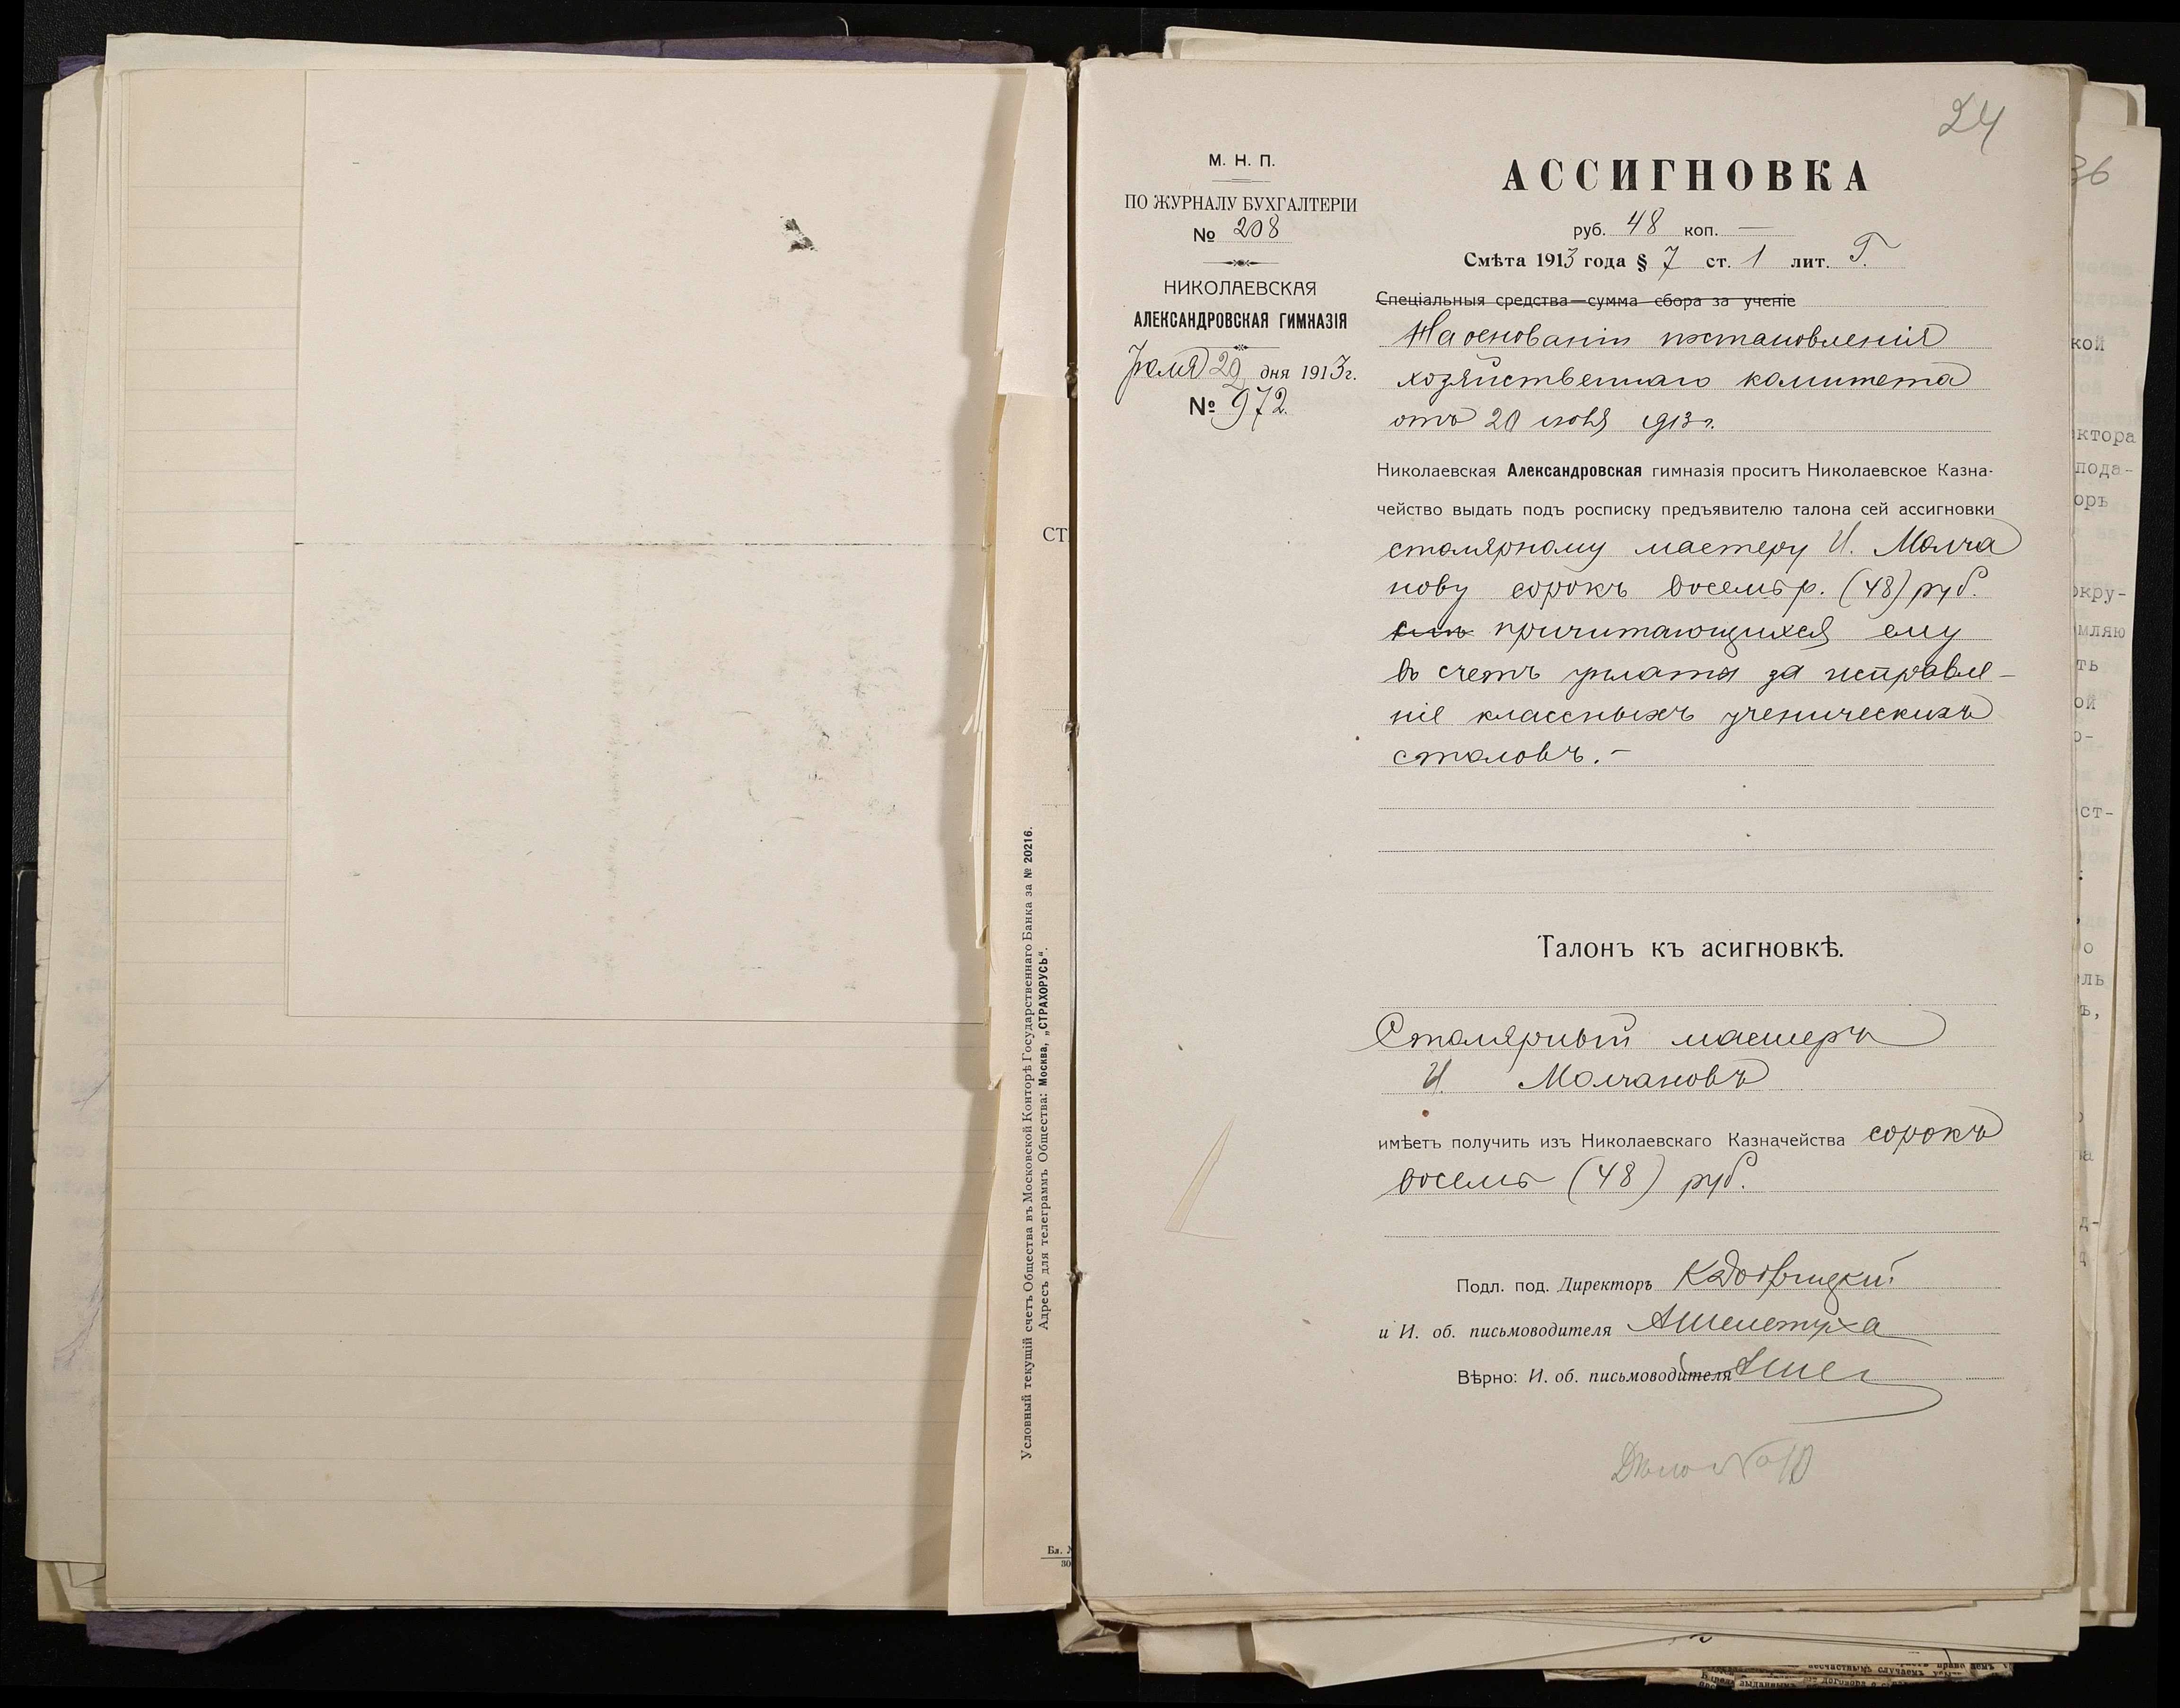 СТ
Условный текущій счетъ Общества въ Московской Конторѣ Государственнаго Банка за № 20216.
Адресъ для телеграммъ Общества: Москва, „СТРАХОРУСЬ“.
Бл.
30
24
М. Н. П.
ПО ЖУРНАЛУ БУХГАЛТЕРІИ
№ 208
НИКОЛАЕВСКАЯ
АЛЕКСАНДРОВСКАЯ ГИМНАЗІЯ
Іюля 29 дня 1913 г.
№ 972.
АССИГНОВКА
руб. 48 коп. —
Смѣта 1913 года § 7 ст. 1 лит. Г.
Спеціальныя средства—сумма сбора за ученіе
На основаніи постановленія
хозяйственнаго комитета
отъ 20 1913 г.
Николаевская Александровская гимназія проситъ Николаевское Казна-
чейство выдать подъ росписку предъявителю талона сей ассигновки
столярному мастеру И. Молча
нову сорокъ восемь р. (48) руб.
причитающихся ему
въ счетъ уплаты за исправле-
ніе классныхъ ученическихъ
столовъ.-
Талонъ къ асигновкѣ.
Столярный мастеръ
И. Молчановъ
имѣетъ получить изъ Николаевскаго Казначейства сорокъ
восемь (48) руб.
Подл. под. Директоръ
и И. об. письмоводителя АШелетуха
Вѣрно: И. об. письмоводителя АШел
Дѣло № 10
36
кой
ктора
пода-
оръ
окру-
мляю
ть
ой
о-
ст-
о
ль
ъ,
д-